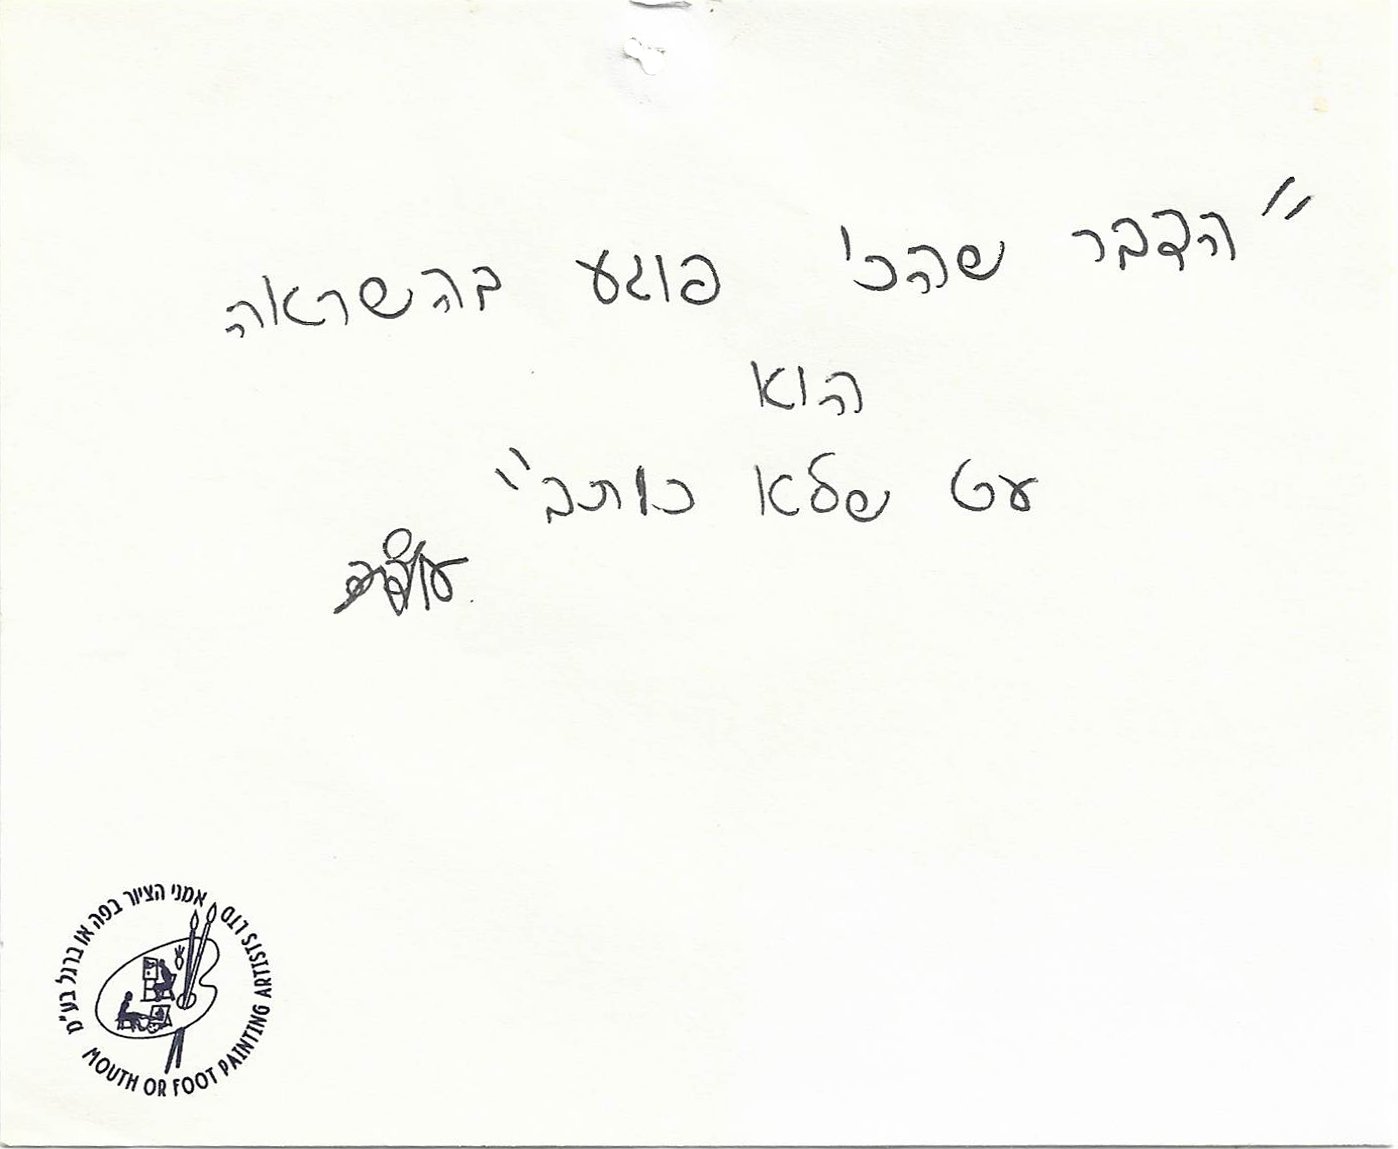 "הדבר שהכי פוגע בהשראה
הוא
עט שלא כותב"
אמני הציור בפה או ברגל בע"מ
MOUTH OR FOOT PAINTING ARTISTS LTD